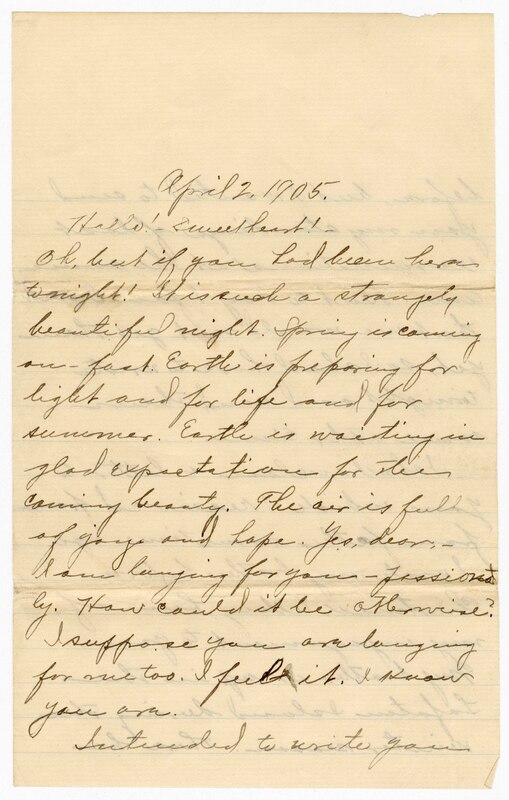 April 2, 1905.
Hallo! - Sweetheart! -
Oh, but if you had been here
tonight! It is such a strangely
beautiful night. Spring is coming
on - fast. Earth is preparing for
light and for life and for
summer. Earth is waiting in
glad expectation for the
coming beauty. The air is full
of joye and hope. Yes, dear, -
I am longing for you - passionat
ly. How could it be otherwise?
I suppose you are longing
for me too. I feel it. I know
you are.
Intended to write you